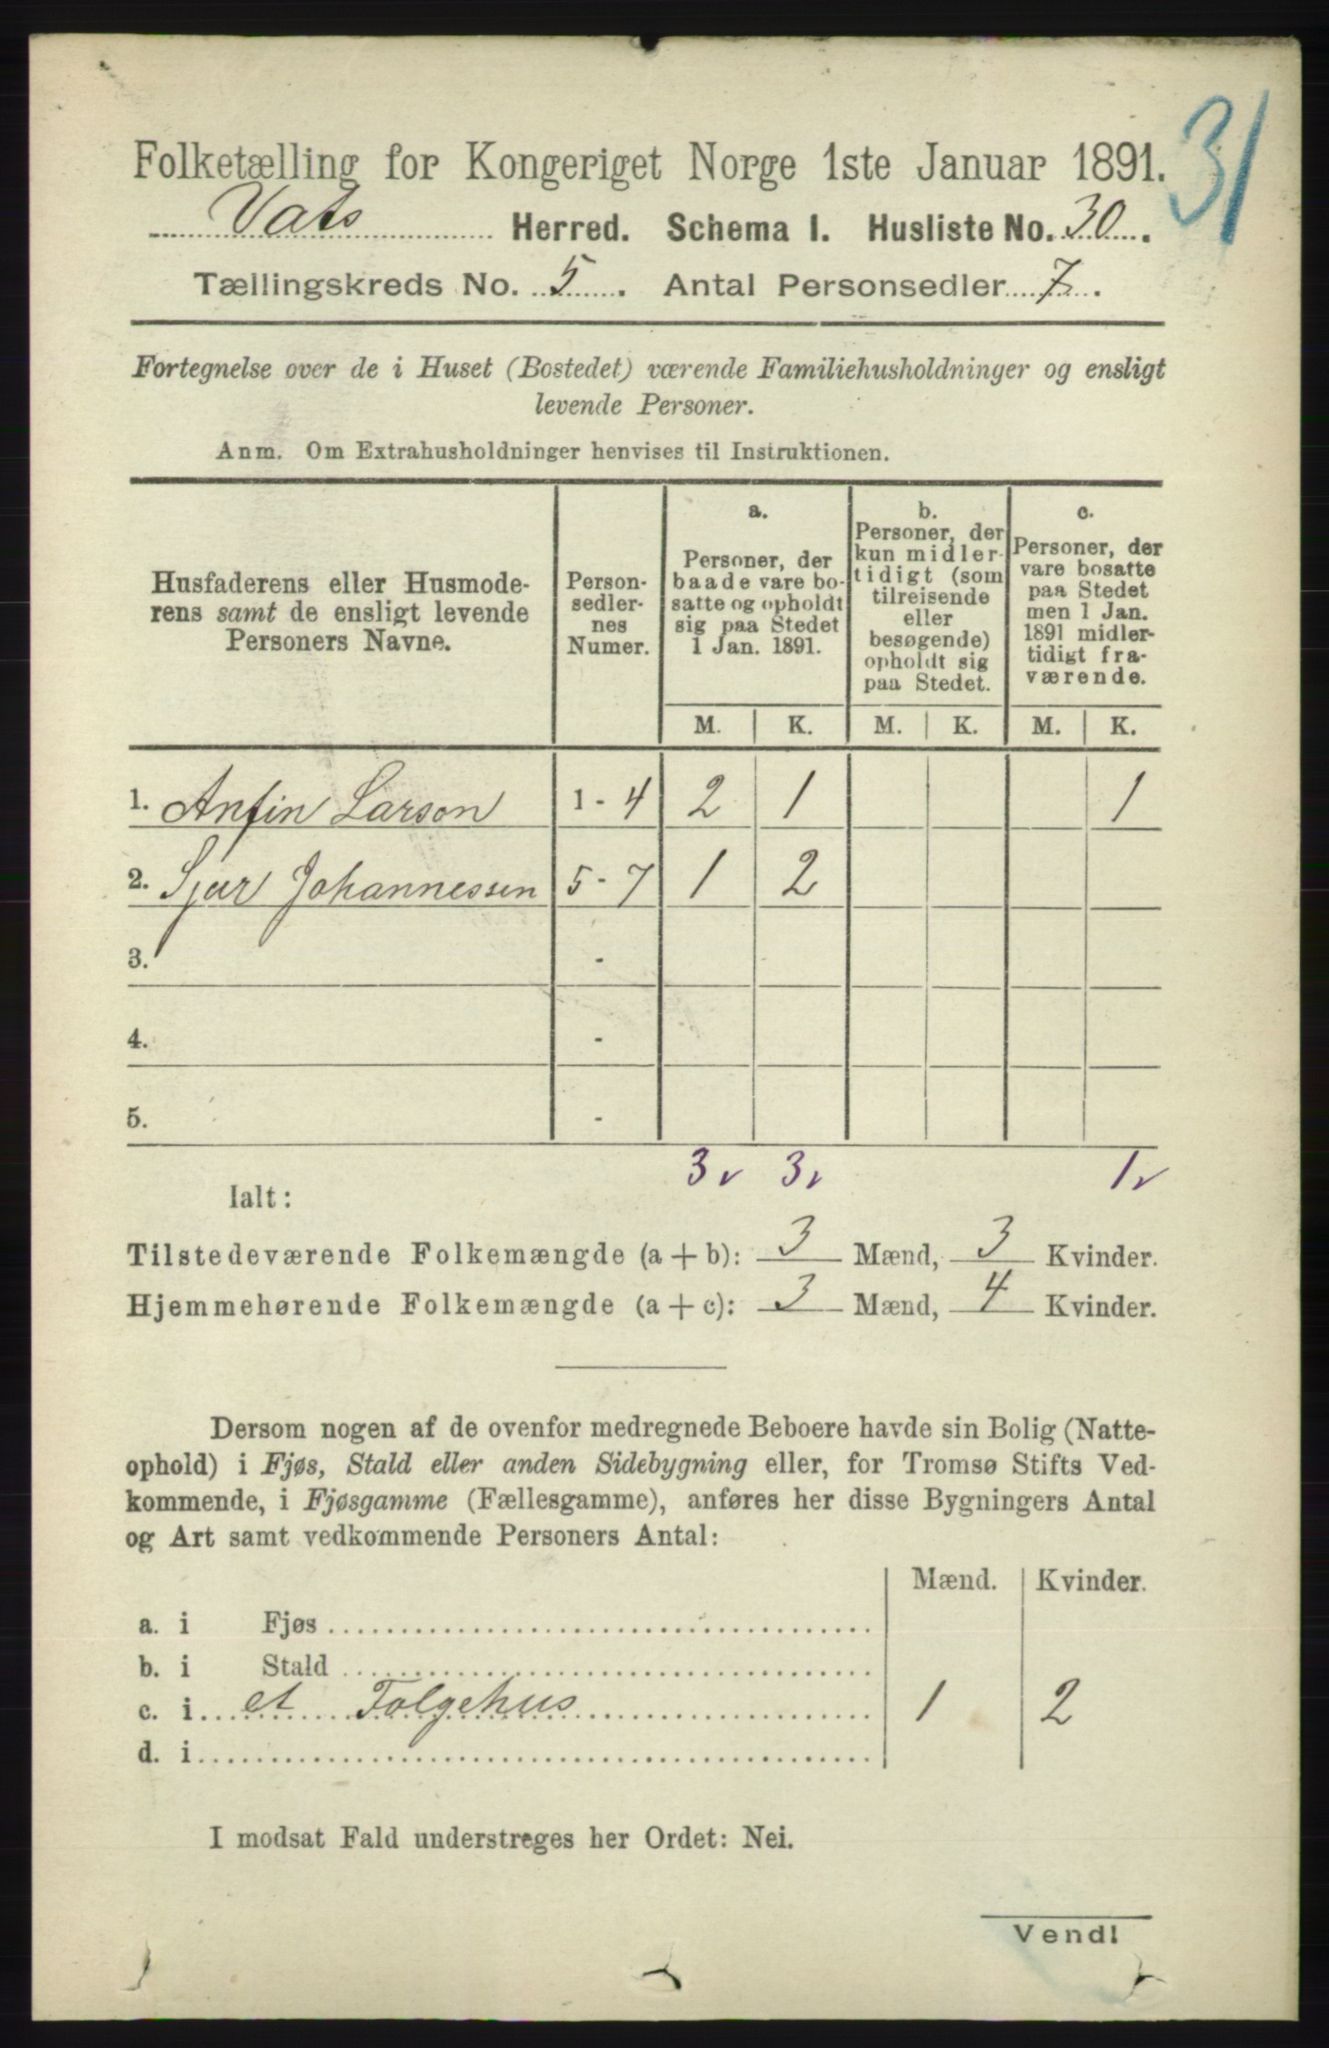 31
Folketælling for Kongeriget Norge 1ste Januar 1891.
Vats Herred. Schema I. Husliste No. 30.
Tællingskreds No. 5. Antal Personsedler 7.
Fortegnelse over de i Huset (Bostedet) værende Familiehusholdninger og ensligt
levende Personer.
Anm. Om Extrahusholdninger henvises til Instruktionen.
Husfaderens eller Husmode-
rens samt de ensligt levende
Personers Navne.
Person-
sedler-
nes
Numer.
a.
Personer, der
baade vare bo-
satte og opholdt
sig paa Stedet
1 Jan. 1891.
b.
Personer, der
kun midler-
tidigt (som
tilreisende
eller
besøgende)
opholdt sig
paa Stedet.
c.
Personer, der
vare bosatte
paa Stedet
men 1 Jan.
1891 midler-
tidigt fra-
værende.
M. K. M. K. M. K.
1. Anfin Larson 1 - 4 2 1 1
2. Sjur Johannessen 5 - 7 1 2
3. -
4. -
5. -
3 3 1
Ialt:
Tilstedeværende Folkemængde (a + b): 3 Mænd, 3 Kvinder.
Hjemmehørende Folkemængde (a + c): 3 Mænd, 4 Kvinder.
Dersom nogen af de ovenfor medregnede Beboere havde sin Bolig (Natte-
ophold) i Fjøs, Stald eller anden Sidebygning eller, for Tromsø Stifts Ved-
kommende, i Fjøsgamme (Fællesgamme), anføres her disse Bygningers Antal
og Art samt vedkommende Personers Antal:
Mænd. Kvinder.
a. i Fjøs
b. i Stald
c. i et Folgehus 1 2
d. i
I modsat Fald understreges her Ordet: Nei.
Vend!